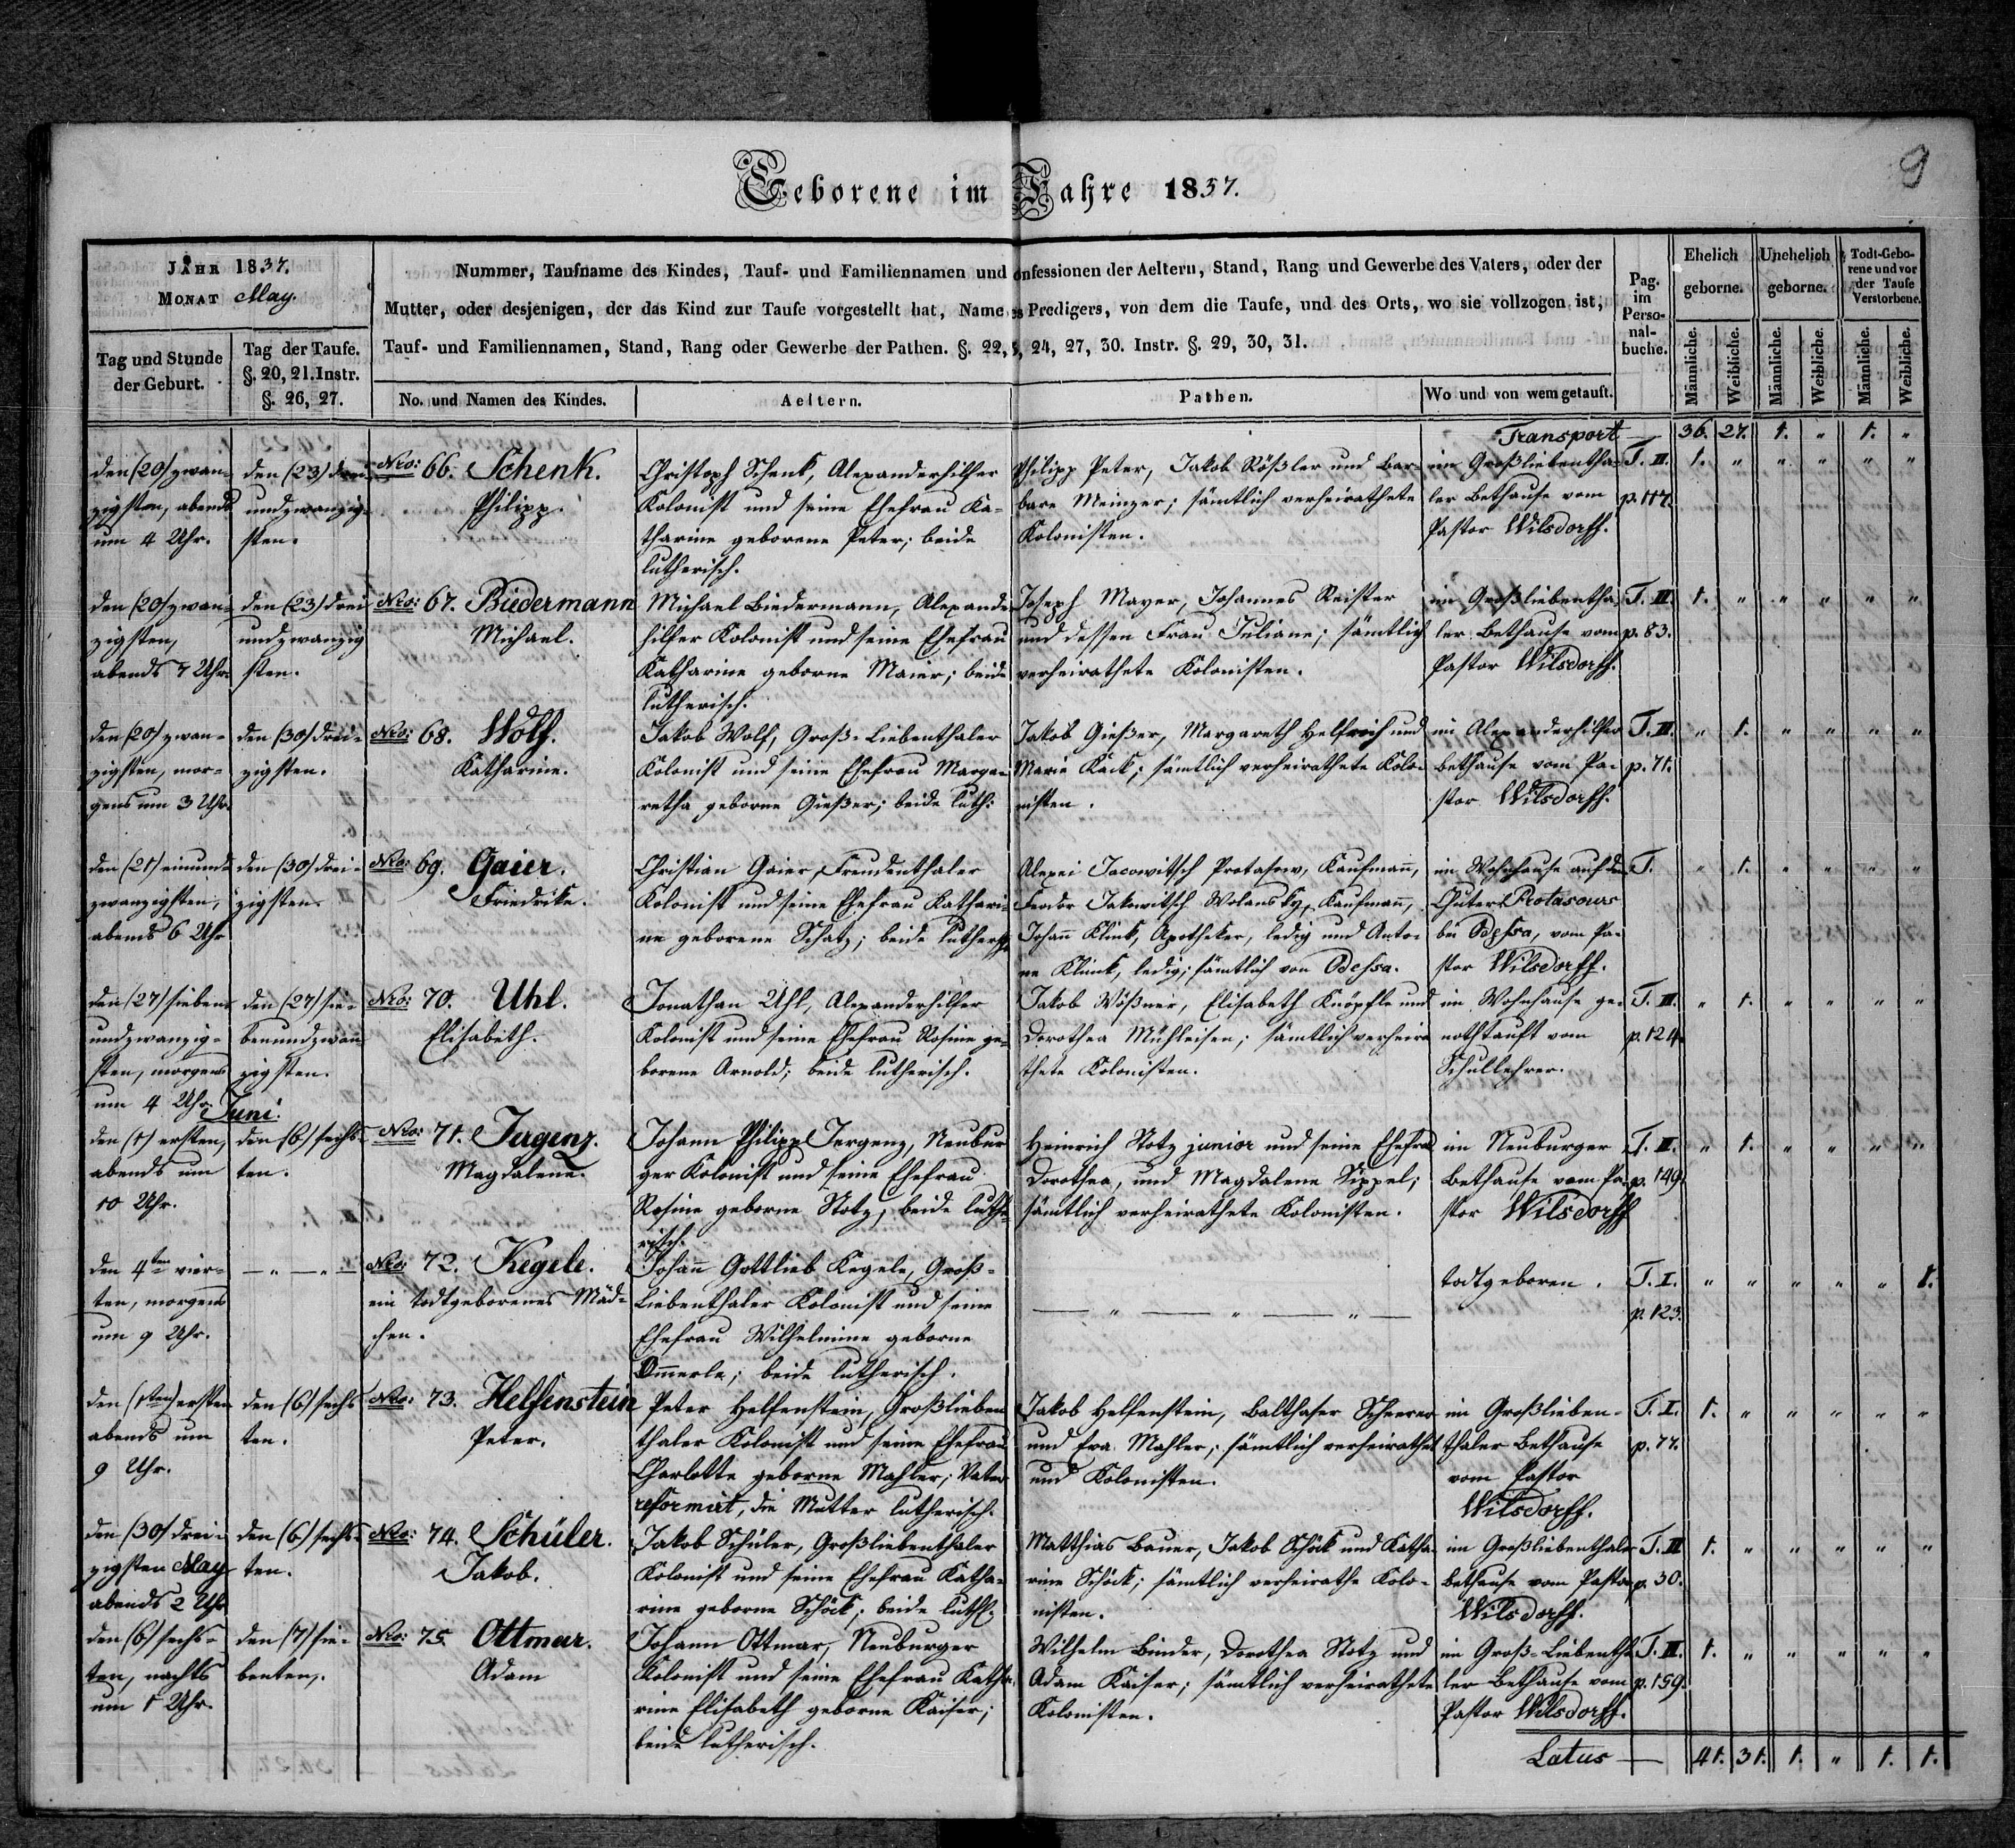 9
Geborene im Jahre 1837.
JAHR 1837.
MONAT May.
Tag und Stunde
der Geburt.
Tag der Taufe.
§. 20, 21. Instr.
§. 26, 27.
Nummer, Taufname des Kindes, Tauf- und Familiennamen und onfessionen der Aeltern, Stand, Rang und Gewerbe des Vaters, oder der
Mutter, oder desjenigen, der das Kind zur Taufe vorgestellt hat, Name es Predigers, von dem die Taufe, und des Orts, wo sie vollzogen ist,
Tauf- und Familiennamen, Stand, Rang oder Gewerbe der Pathen. §. 22, 24, 27, 30. Instr. §. 29, 30, 31.
No. und Namen des Kindes.
Aeltern.
Pathen.
Wo und von wem getauft.
Pag.
im
Perso-
nal-
buche.
Ehelich
geborne.
Unehelich
geborne.
Todt-Gebo-
rene und vor
der Taufe
Verstorbene.
Männliche.
Weibliche.
Männliche.
Weibliche.
Männliche.
Weibliche.
Transport — 36. 27. 1. " 1. "
den (20) zwan-
zigsten, abends
um 4 Uhr.
den (23) drei-
undzwanzig-
sten.
Nro: 66. Schenk.
Philipp.
Christoph Schenk, Alexanderhilfer
Kolonist und seine Ehefrau Ka-
tharine geborene Peter; beide
lutherisch.
Philipp Peter, Jakob Rößler und Bar-
bara Meinzer; sämtlich verheirathete
Kolonisten.
im Großliebentha-
ler Bethause vom
Pastor Wilsdorff.
T. III.
p. 117.
1. " " " " "
den (20) zwan-
zigsten,
abends 7 Uhr.
den (23) drei
undzwanzig
sten.
Nro: 67. Biedermann
Michael.
Michael Biedermann, Alexander
hilfer Kolonist und seine Ehefrau
Katharine geborne Maier; beide
lutherisch.
Joseph Mayer, Johannes Reister
und dessen Frau Juliane; sämtlich
verheirathete Kolonisten.
im Großliebentha-
ler Bethause vom
Pastor Wilsdorff.
T. III.
p. 83.
1. " " " " "
den (20) zwan-
zigsten, mor-
gens um 3 Uhr.
den (30) drei-
zigsten.
Nro: 68. Wolf.
Katharine.
Jakob Wolf, Groß-Liebenthaler
Kolonist und seine Ehefrau Marga-
retha geborne Gießer; beide luth:
Jakob Gießer, Margareth Helfrich und
Marie Kack; sämtlich verheirathete Kolo-
nisten.
im Alexanderhilfer
Bethause vom Pa-
stor Wilsdorff.
T. III.
p. 71.
" 1. " " " "
den (21) einund
zwanzigsten,
abends 6 Uhr
den (30) drei-
zigsten.
Nro: 69. Gaier.
Friedrike.
Christian Gaier, Freudenthaler
Kolonist und seine Ehefrau Kathari-
ne geborene Schatz; beide lutherisch
Alexei Jacowitsch Protasow, Kaufmann,
Feodor Jakowitsch Wolansky, Kaufmann,
Johann Klink, Apotheker, ledig und Anto-
ne Klink, ledig; sämtlich von Odessa.
im Wohnhause auf dem
Chutor Protasows
bei Odessa, vom Pa-
stor Wilsdorff.
T.
" 1. " " " "
den (27) sieben
undzwanzig-
sten, morgens
um 4 Uhr.
den (27) sie-
benundzwan
zigsten.
Nro: 70. Uhl.
Elisabeth.
Jonathan Uhl, Alexanderhilfer
Kolonist und seine Ehefrau Rosine ge-
borene Arnold; beide lutherisch.
Jakob Wößner, Elisabeth Knöpfle und
Dorothea Mühleisen; sämtlich verheira
thete Kolonisten.
im Wohnhause ge-
nothtauft vom
Schullehrer.
T. III.
p. 124.
" 1. " " " "
Juni.
den (1) ersten,
abends um
10 Uhr.
den (6) sechs-
ten.
Nro: 71. Jergenz.
Magdalene.
Johann Philipp Jergenz, Neubur
ger Kolonist und seine Ehefrau
Rosine geborne Stotz; beide luthe-
risch.
Heinrich Stotz junior und seine Ehefrau
Dorothea, und Magdalene Sippel;
sämtlich verheirathete Kolonisten.
im Neuburger
Bethause vom Pa-
stor Wilsdorff
T. II.
p. 149.
" 1. " " " "
den 4ten vier-
ten, morgens
um 9 Uhr.
— " — " —
Nro: 72. Kegele.
ein todtgeborenes Mäd-
chen.
Johann Gottlieb Kegele, Groß-
Liebenthaler Kolonist und seine
Ehefrau Wilhelmine geborne
Ommerle; beide lutherisch.
— " — " — " —
todtgeboren.
T. I.
p. 123.
" " " " " 1.
den (1ten) ersten
abends um
9 Uhr.
den (6) sechs
ten.
Nro: 73. Helfenstein
Peter.
Peter Helfenstein, Großlieben
thaler Kolonist und seine Ehefrau
Charlotte geborne Mahler; Vater
reformirt, die Mutter lutherisch.
Jakob Helfenstein, Balthaser Scheerer
und Eva Mahler; sämtlich verheirathet
und Kolonisten.
im Großlieben-
thaler Bethause
vom Pastor
Wilsdorff.
T. I.
p. 77.
1. " " " " "
den (30) drei-
zigsten May
abends 2 Uhr
den (6) sechs-
ten.
Nro: 74. Schüler.
Jakob.
Jakob Schüler, Großliebenthaler
Kolonist und seine Ehefrau Katha-
rine geborne Schöck; beide luth.
Matthias Bauer, Jakob Schöck und Katha-
rine Schöck; sämtlich verheirathe Kolo-
nisten.
im Großliebenthaler
Bethause vom Pastor
Wilsdorff.
T. II
p. 30.
1. " " " " "
den (6) sechs-
ten, nachts
um 1 Uhr.
den (7) sie-
benten.
Nro: 75. Ottmar.
Adam
Johann Ottmar, Neuburger
Kolonist und seine Ehefrau Katha
rine Elisabeth geborne Kaiser;
beide lutherisch.
Wilhelm Binder, Dorothea Stotz und
Adam Kaiser; sämtlich verheirathete
Kolonisten.
im Groß-Liebentha
ler Bethause vom
Pastor Wilsdorff.
T. III.
p. 159.
1. " " " " "
Latus — 41. 31. 1. " 1. 1.